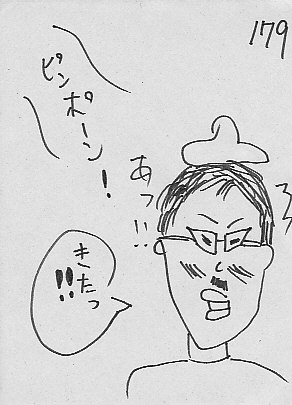 179
ピンポーン!
あっ!!
きたっ!!